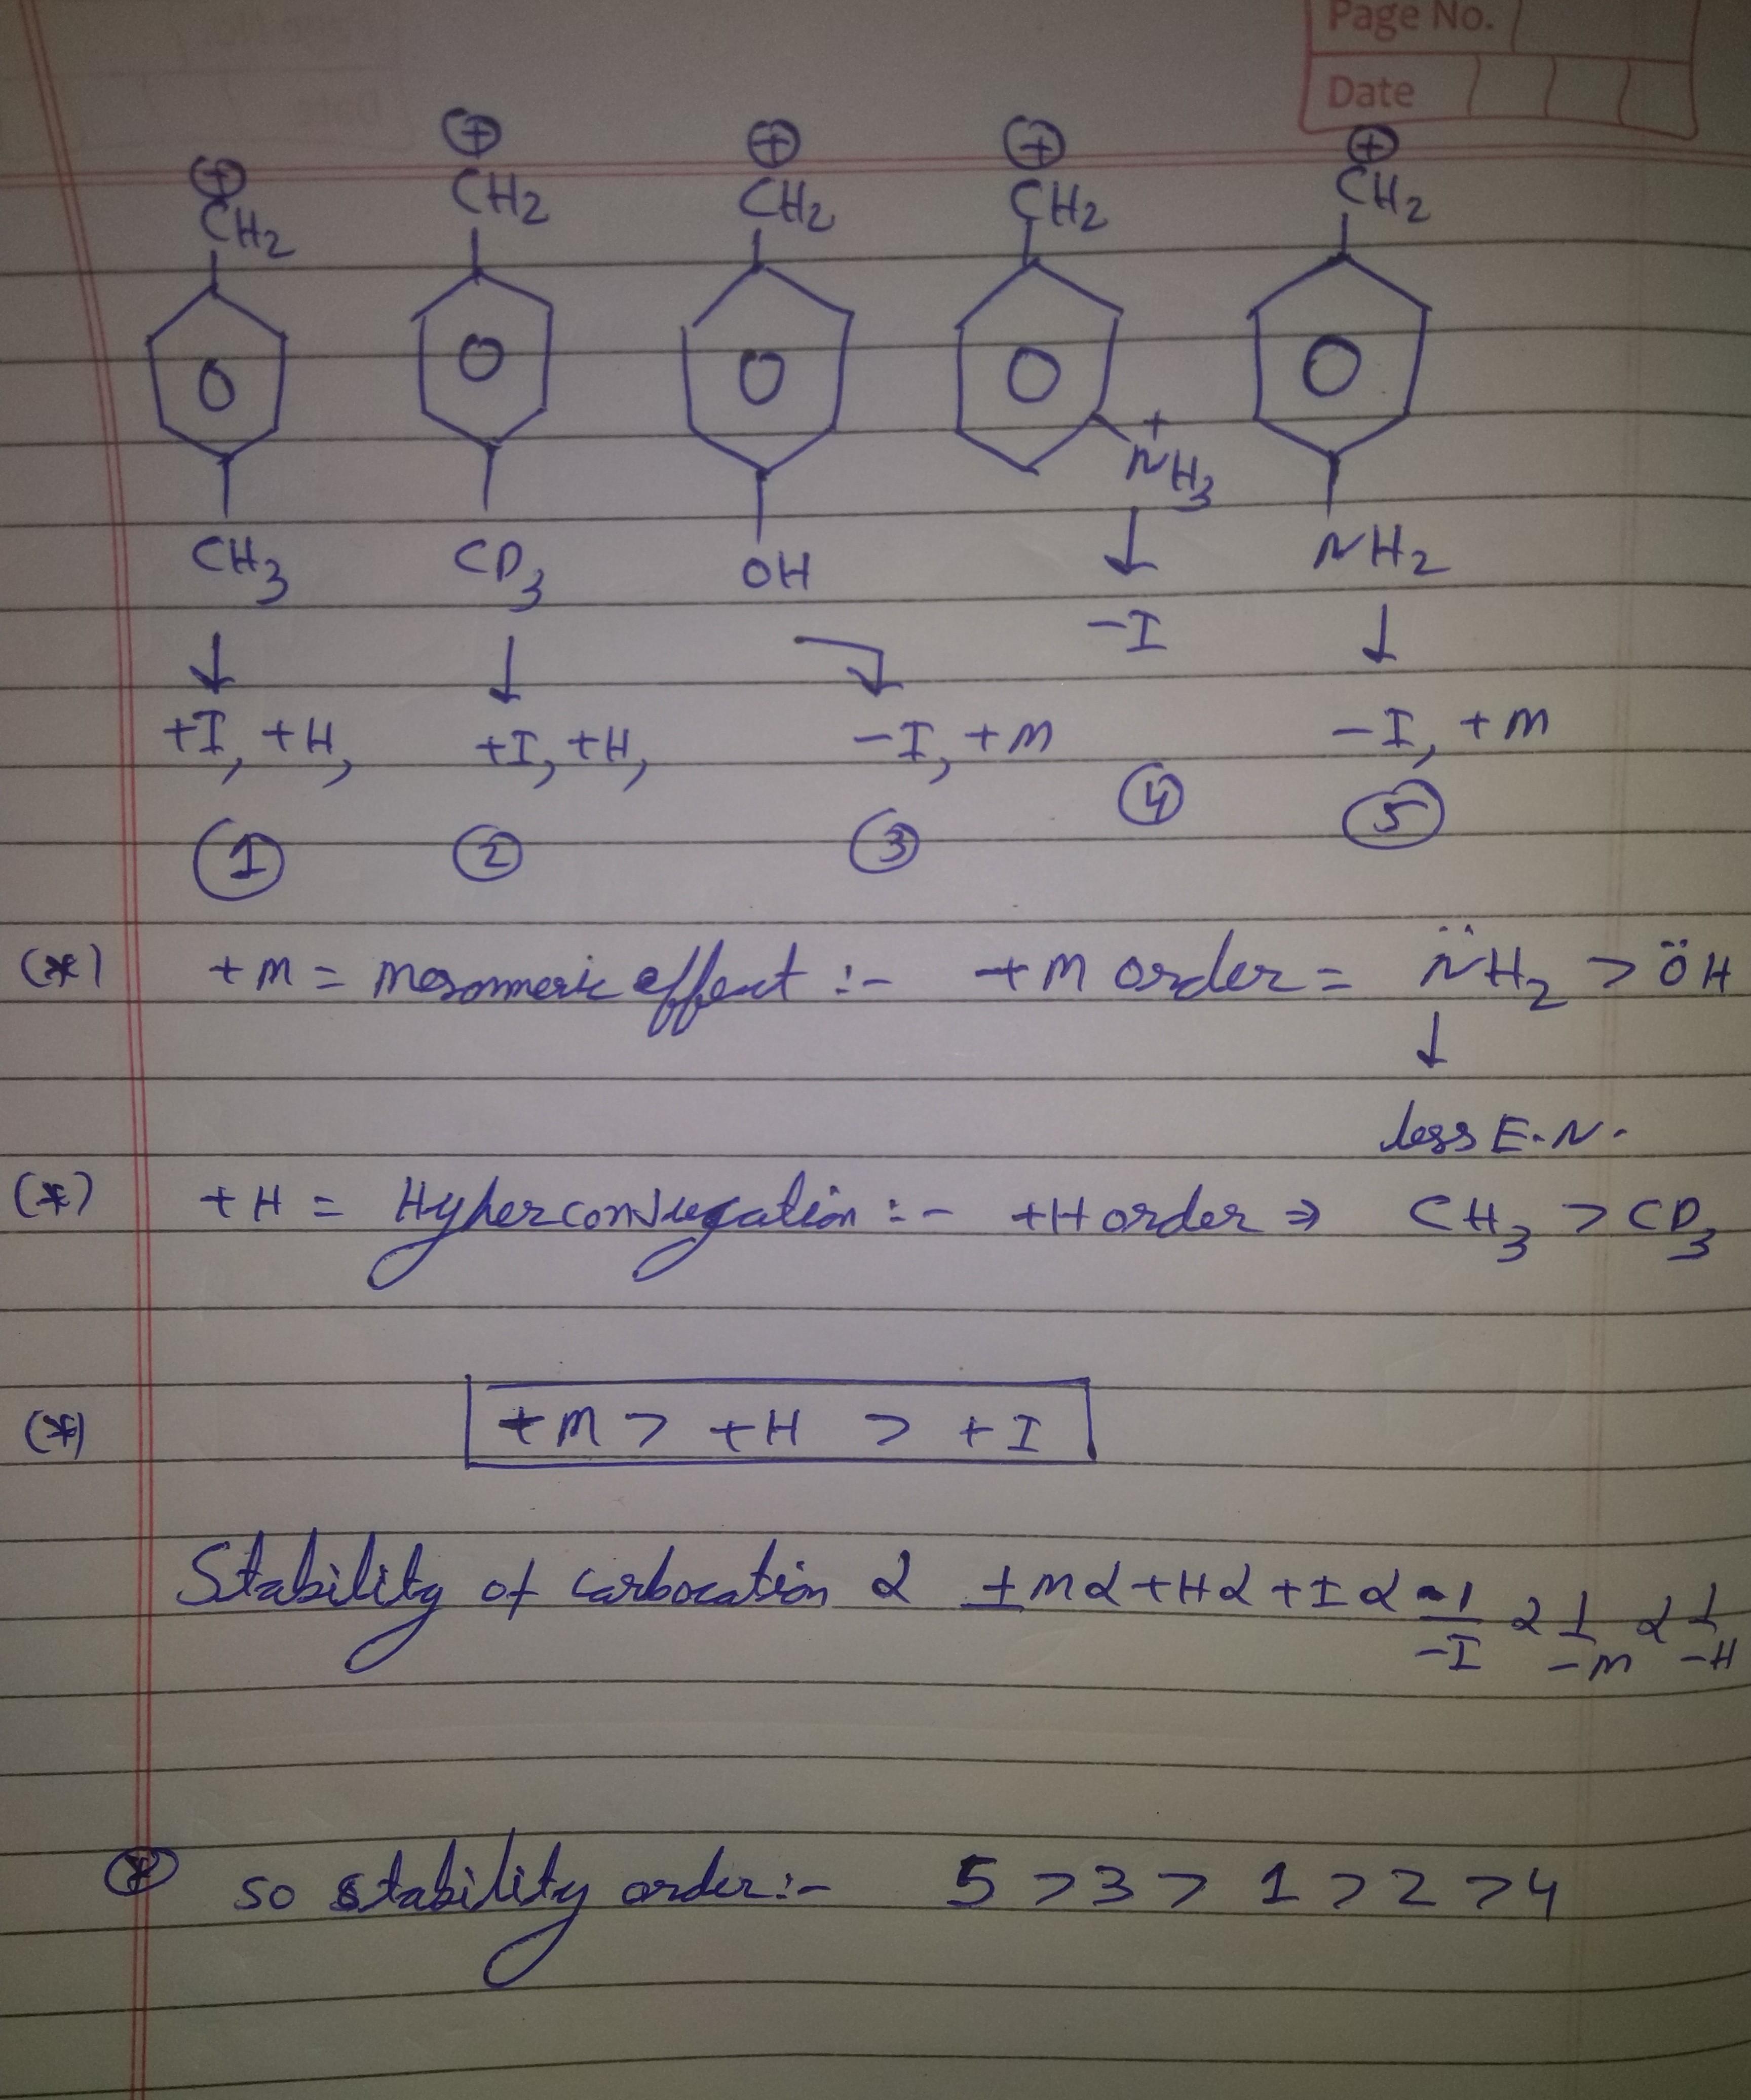 Page No.
Date
⊕ ⊕ ⊕ ⊕ ⊕
CH₂ CH₂ CH₂ CH₂ CH₂
CH₃ CD₃ OH +NH₃ NH₂
↓ ↓ ↓ ↓ ↓
+I, +H, +I, +H, -I, +M -I -I, +M
① ② ③ ④ ⑤
(*) +M = Mesomeric effect :- +M order = N̈H₂ > ÖH
↓
less E.N.
(*) +H = Hyperconjugation :- +H order ⇒ CH₃ > CD₃
(*) +M > +H > +I
Stability of carbocation α +M α +H α +I α 1/-I α 1/-M α 1/-H
⊛ so stability order :- 5 > 3 > 1 > 2 > 4